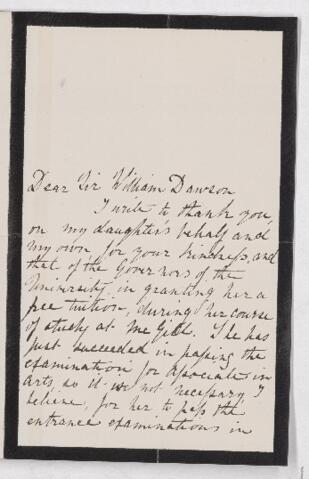 Dear Sir William Dawson
I write to thank you,
on my daughter's behalf and
my own for your kindness, and
that of the Governors of the
University, in granting her a
free tuition, during her course
of study at McGill. She has
just succeeded in passing the
examination for Associate in
arts, so it is not necessary I
believe, for her to pass the
entrance examinations in